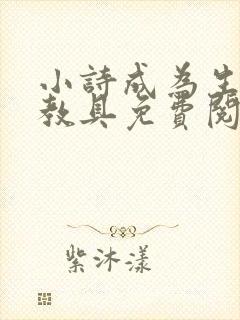 小詩成為生
教具免費閱
紫沐漾